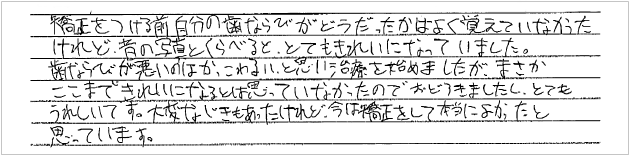 矯正をつける前自分の歯ならびがどうだったかはよく覚えていなかった
けれど、昔の写真とくらべると、とてもきれいになっていました。
歯ならびが悪いのはかっこわるい、と思い治療を始めましたが、まさか
ここまできれいになるとは思っていなかったのでおどろきましたし、とても
うれしいです。大変なじきもあったけれど、今は矯正をして本当によかったと
思っています。